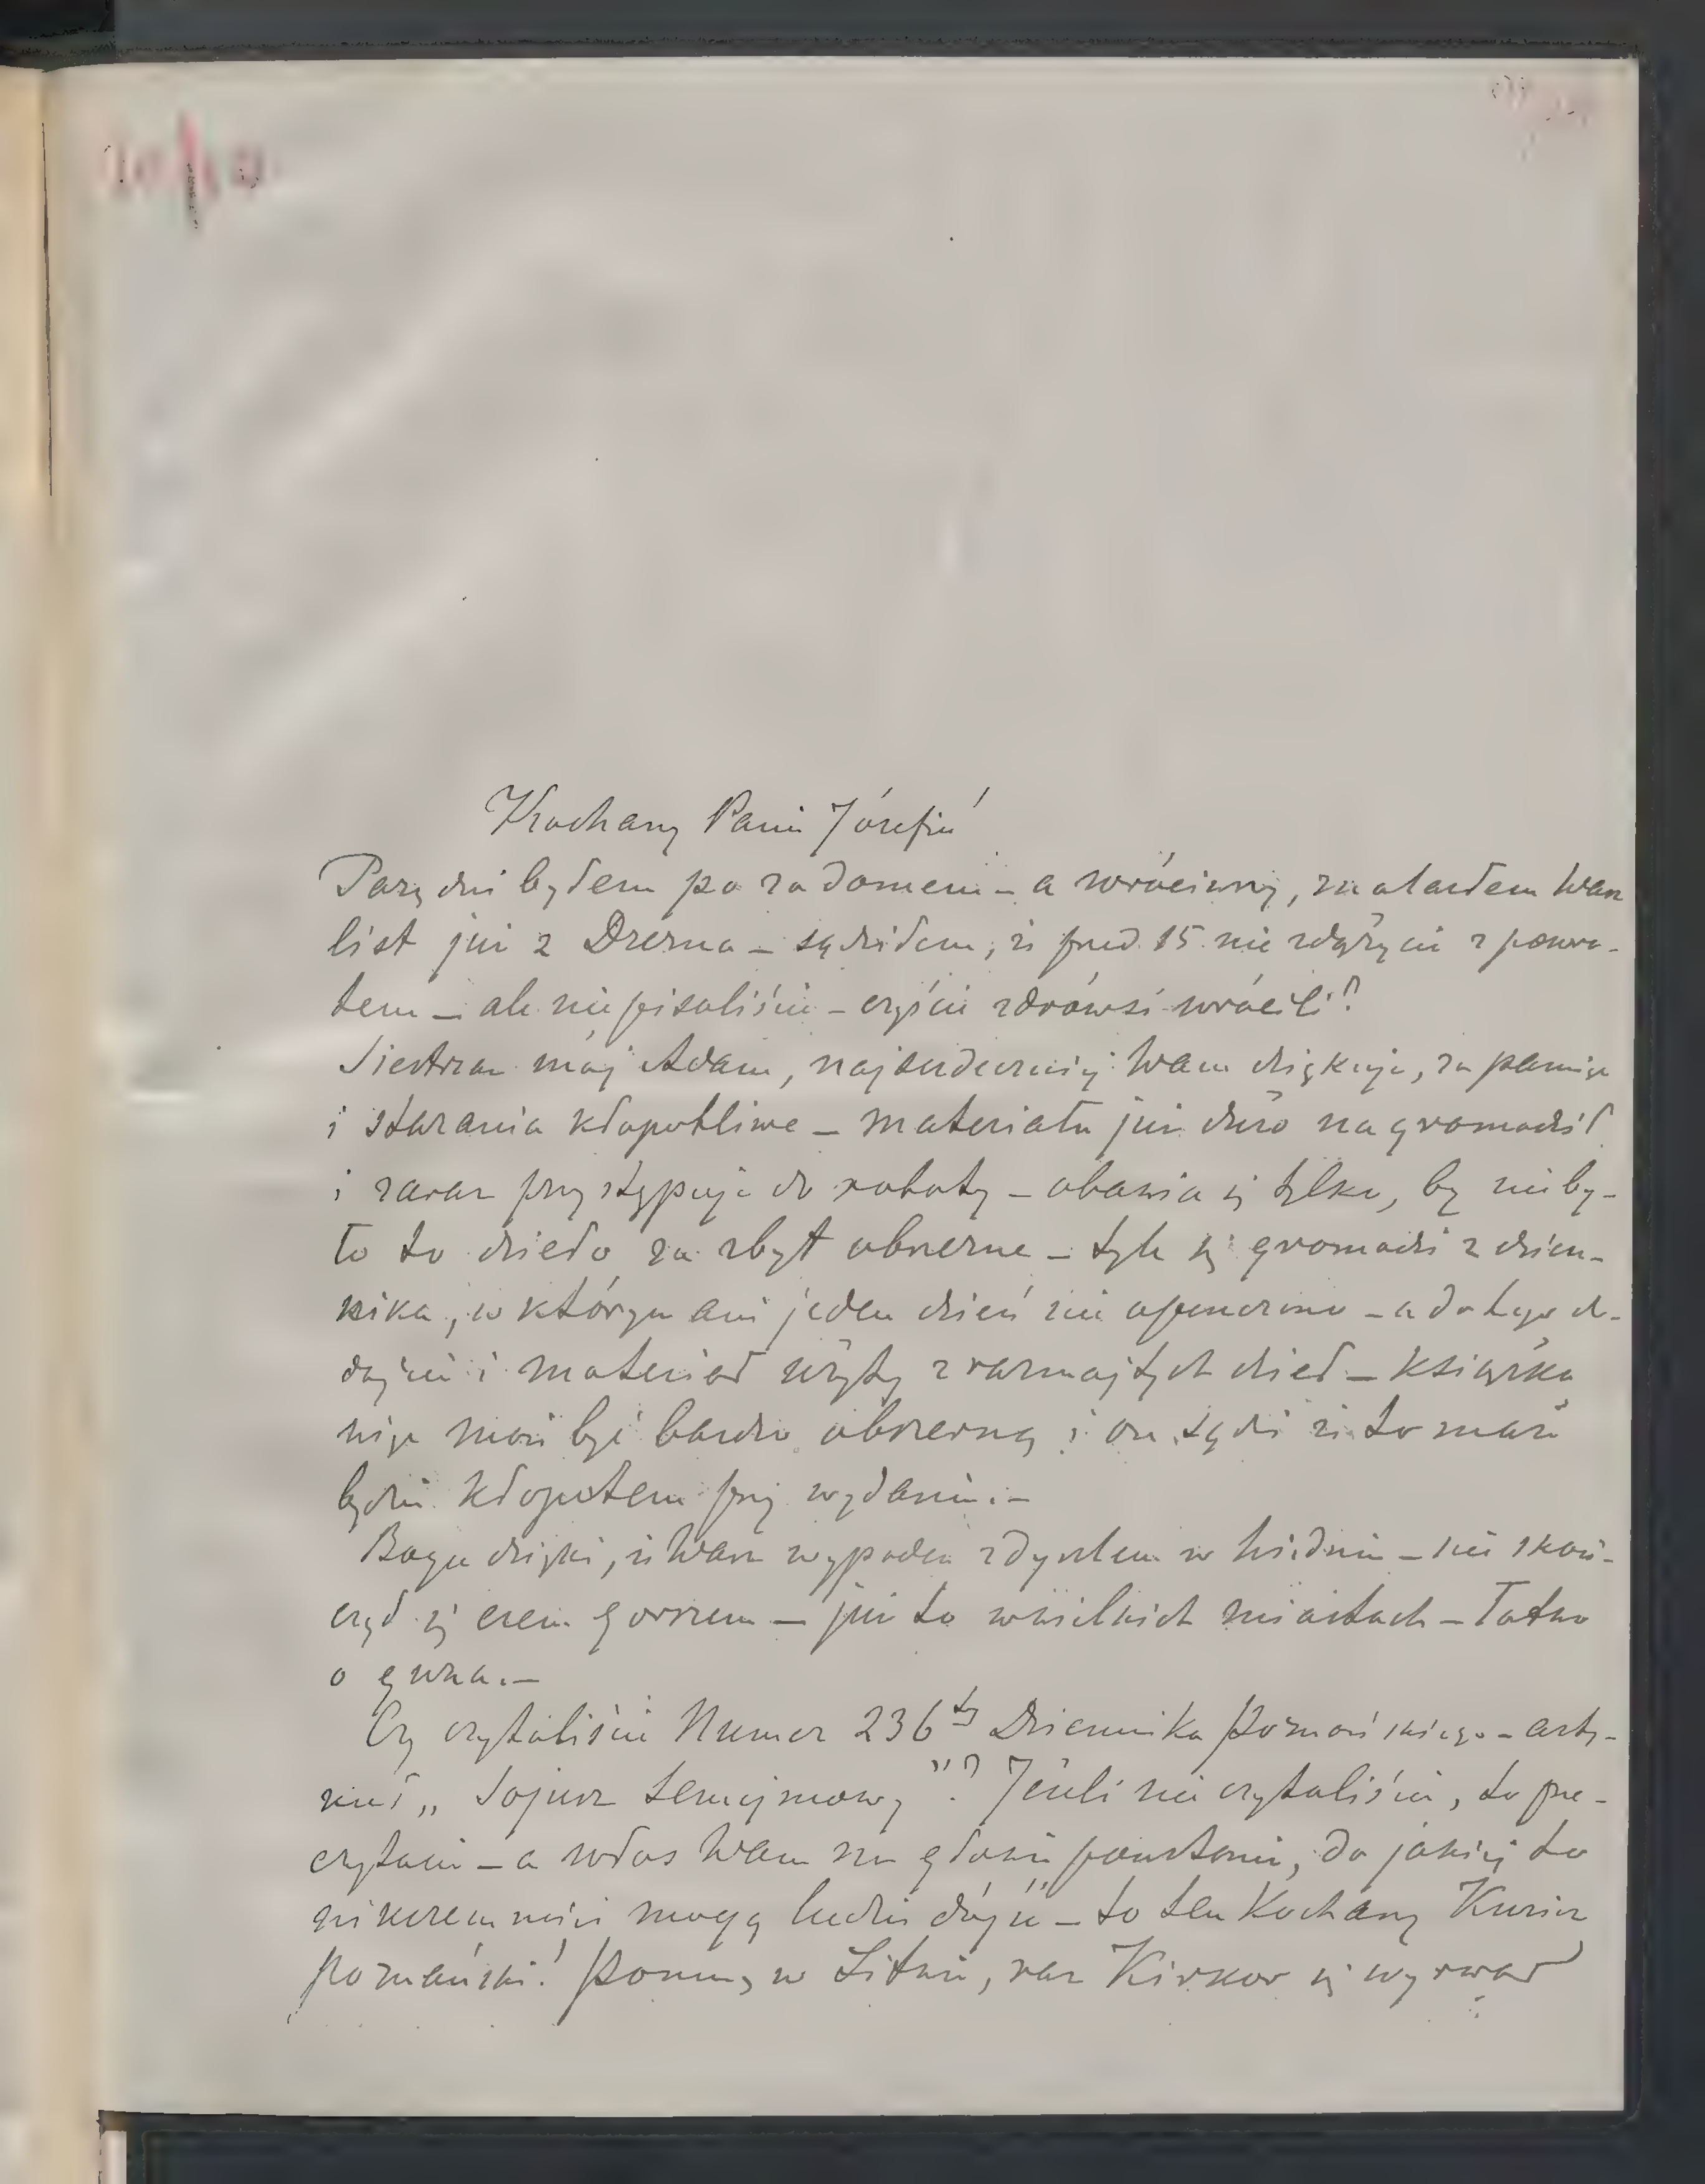 Kochany Panie Józefie!
Parę dni byłem po za domem – a wróciwszy, znalazłem Wasz
list już z Drezna – sądziłem, iż przed 15. nie zdążycie z powro-
tem – ale nie pisaliście – czyście zdrowsi wrócili?
Siestrzan mój Adam, najserdeczniej Wam dziękuje, za pamięć
i starania kłopotliwe – materiału już dużo nagromadził
i zaraz przystępuje do roboty – obawia się tylko, by nie by-
ło to dzieło za zbyt obszerne – tyle się gromadzi z dzien-
nika, w którym ani jeden dzień nie opuszczono – a do tego do-
dajcie i materiał wzięty z rozmajtych dzieł – książka
więc może być bardzo obszerną i on sądzi iż to może
będzie kłopotem przy wydaniu. –
Bogu dzięki, iż Wasz wypadek z dyszlem w Wiedniu – nie skoń-
czył się czem gorszem – już to w wielkich miastach – łatwo
o guza. –
Czy czytaliście Numer 236ty Dziennika Poznańskiego – arty-
kuł „Sojusz            "? Jeśli nie czytaliście, to prze-
czytajcie – a włos Wam na głowie powstanie, do jakiej to
nikczemności mogą ludzie dójść – to ten kochany Kurier
Poznański! Pomnę w Litwie, raz Kirkor się wyrwał